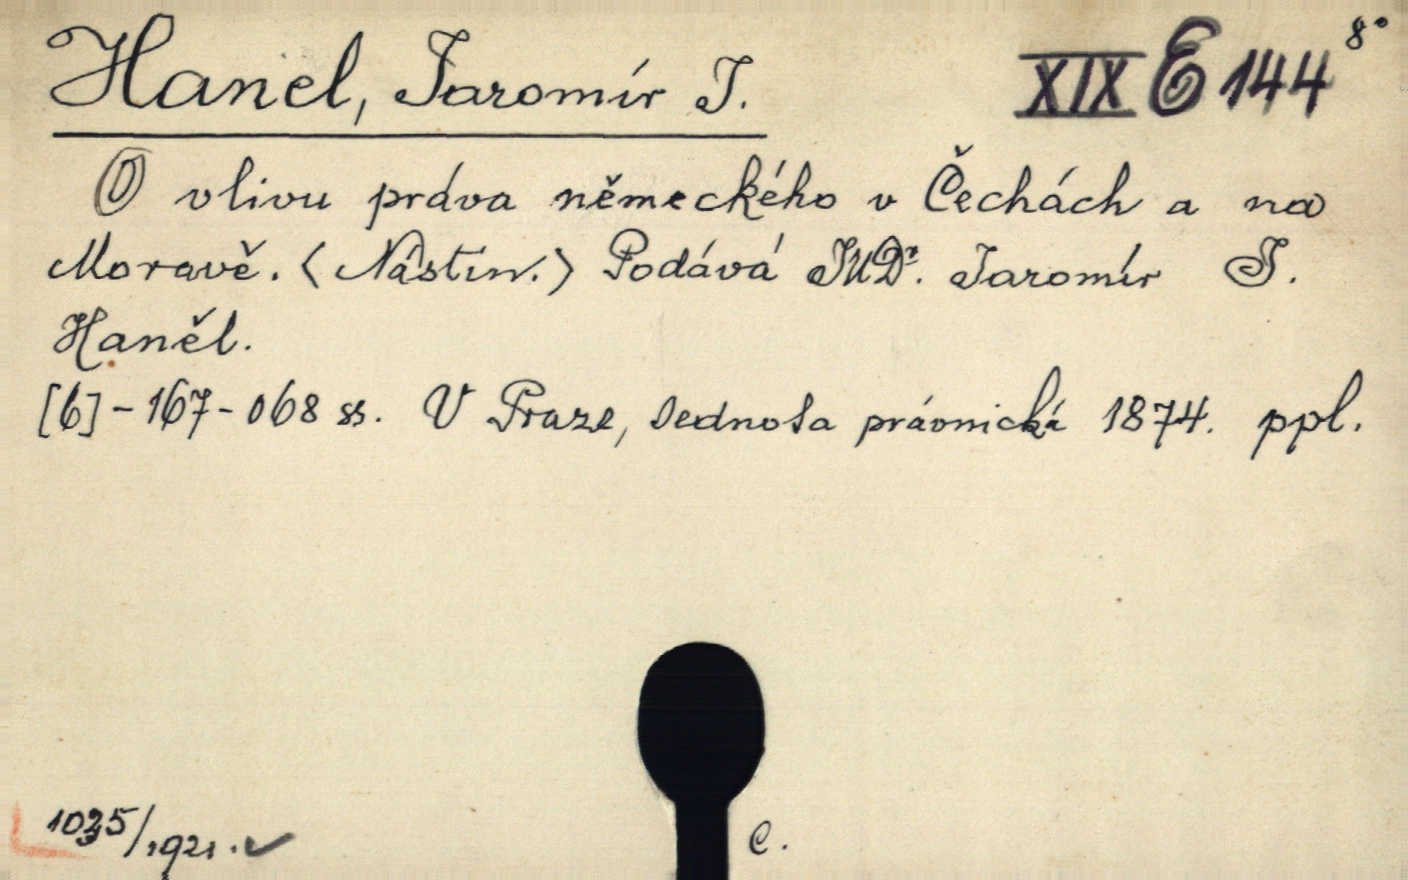 Hanel, Jaromír J.
XIX E 144 8°
O vlivu práva německého v Čechách a na
Moravě. (Nástin.) Podává JUDr. Jaromír J.
Haněl.
[6] - 167 - 068 ss. V Praze, Jednota právnická 1874. ppl.
/1921.
C.